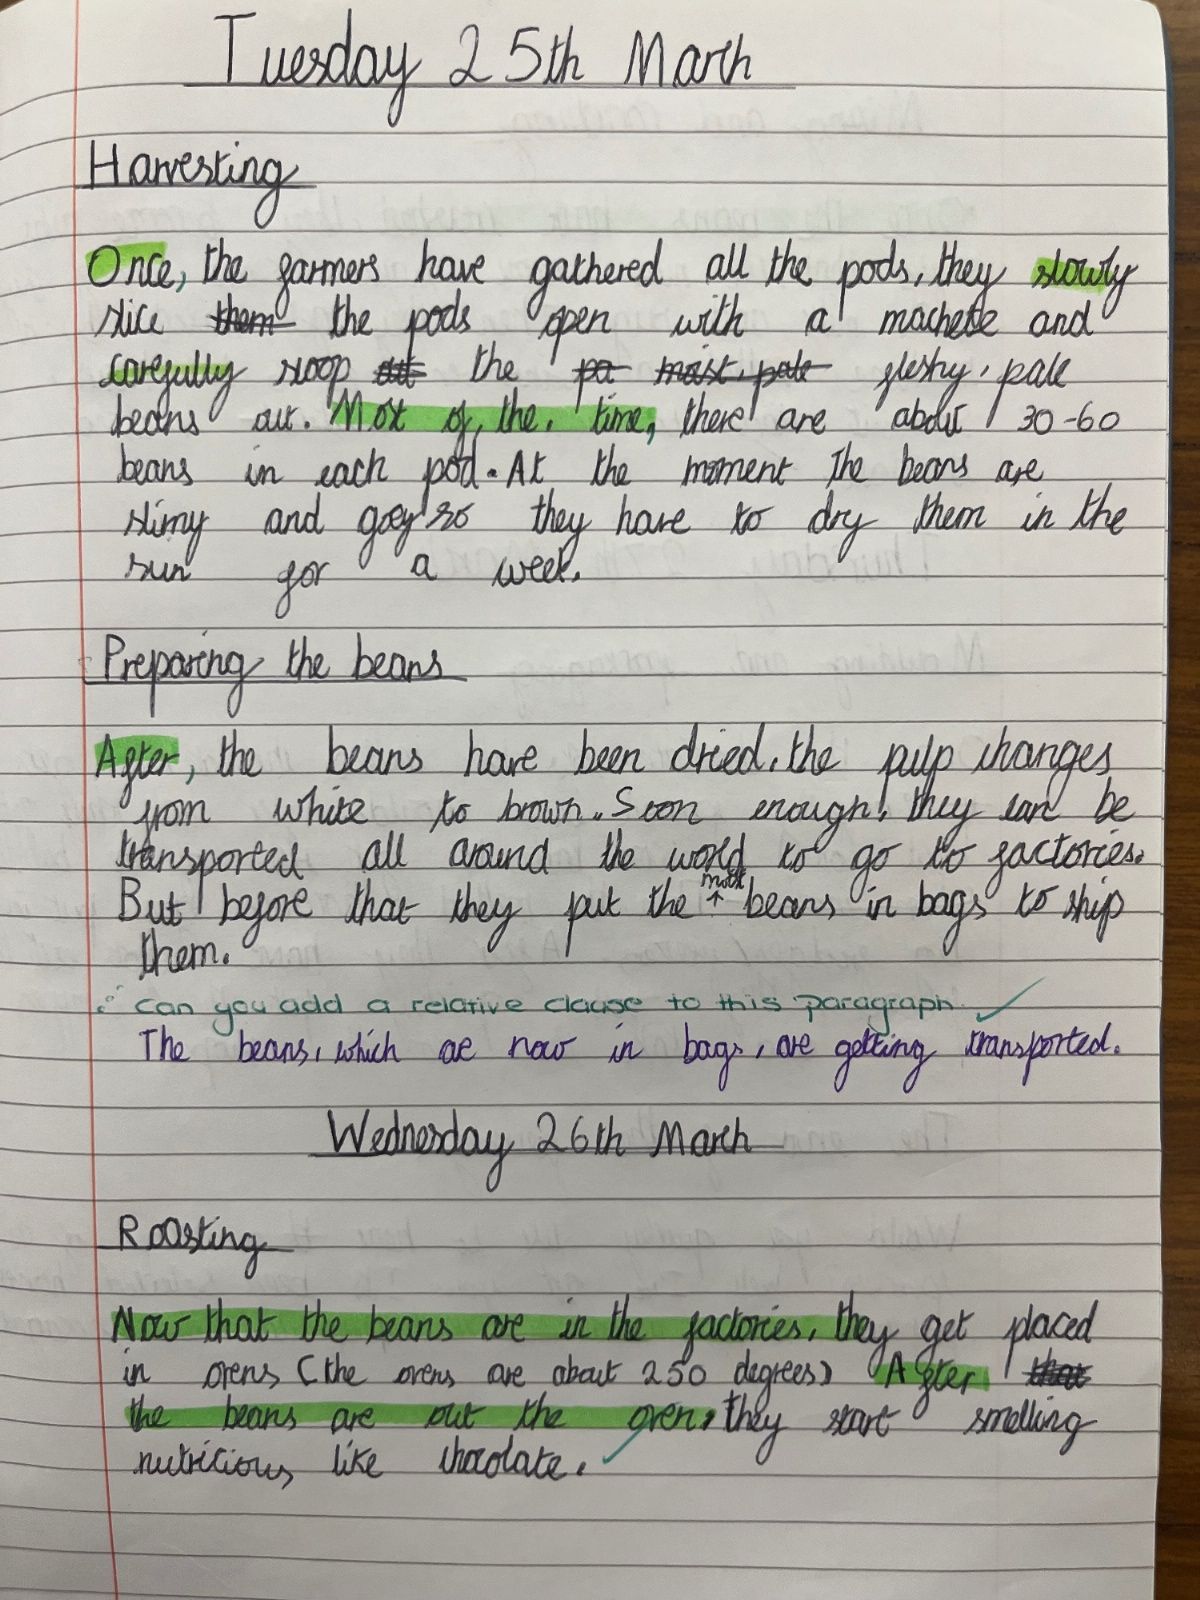 Tuesday 25th March
Harvesting
Once, the farmers have gathered all the pods, they slowly
slice them the pods open with a machete and
carefully scoop out the pa moist, pale fleshy, pale
beans out. Most of, the, time, there are about 30-60
beans in each pod. At the moment The beans are
slimy and gooy so they have to dry them in the
sun for a week.
Preparing the beans
After, the beans have been dried, the pulp changes
from white to brown. Soon enough, they can be
transported all around the world to go to factories.
But before that they put the beans in bags to ship
them.
Can you add a relative clause to this paragraph
The beans, which are now in bags, are getting transported.
Wednesday 26th March
Roasting
Now that the beans are in the factories, they get placed
in ovens (the ovens are about 250 degrees) After that
the beans are out the oven, they start smelling
nutricious like chocolate.